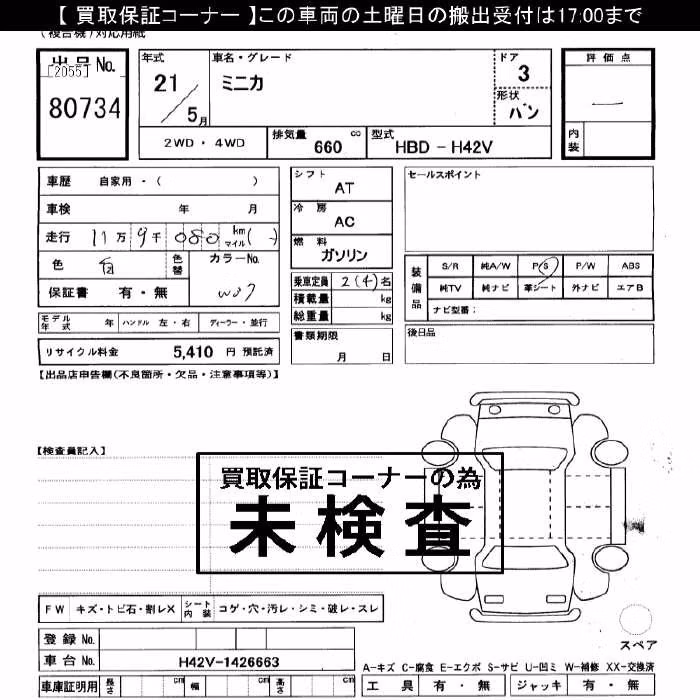 【 買取保証コーナー 】この車両の土曜日の搬出受付は17:00まで
(複合機)対応用紙
出品No.
[2055]
80734
年式
21
5月
車名・グレード
ミニカ
ドア
3
形状
バン
評価点
—
内装
2WD・4WD
排気量
660
cc
型式
HBD - H42V
車歴 自家用・( )
車検 年 月
走行 11万9千080 km マイル( - )
色 白
色替
カラーNo.
W07
保証書 有・無
シフト
AT
冷房
AC
燃料
ガソリン
乗車定員 2(4)名
積載量 kg
総重量 kg
書類期限
月 日
セールスポイント
装備品
S/R 純A/W P/S P/W ABS
純TV 純ナビ 革シート 外ナビ エアB
ナビ型番:
後日品
モデル年式 年 ハンドル 左・右 ディーラー・並行
リサイクル料金 5,410 円 預託済
【出品店申告欄(不良箇所・欠品・注意事項等)】
【検査員記入】
買取保証コーナーの為
未検査
FW キズ・トビ石・割レX シート内装 コゲ・穴・汚レ・シミ・破レ・スレ
スペア
登録No.
車台No. H42V-1426663
車庫証明用 長さ cm 幅 cm 高さ cm
A-キズ C-腐食 E-エクボ S-サビ U-凹ミ W-補修 XX-交換済
工具 有・無 ジャッキ 有・無